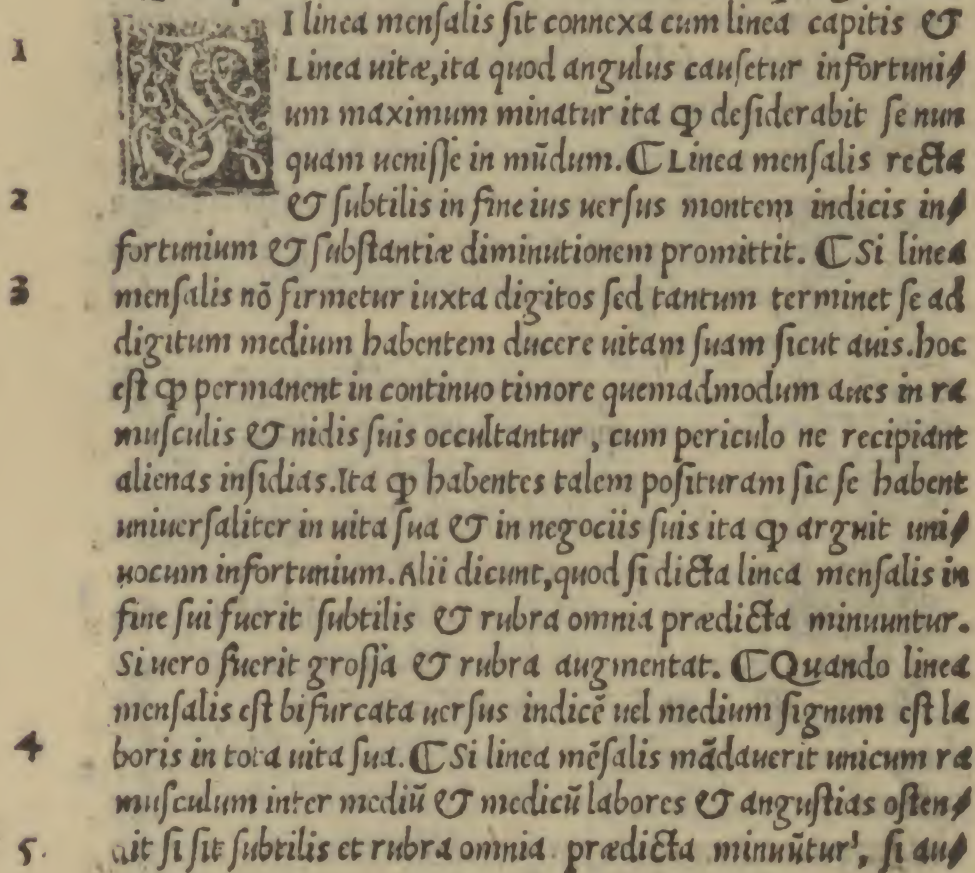 SI linea menſalis ſit connexa cum linea capitis &
1 Linea uitæ, ita quod angulus cauſetur infortuni⸗
um maximum minatur ita ꝙ deſiderabit ſe nun
quam ueniſſe in mūdum. ⁋ Linea menſalis recta
2 & ſubtilis in fine ius uerſus montem indicis in⸗
fortunium & ſubſtantiæ diminutionem promittit. ⁋ Si linea
3 menſalis nō firmetur iuxta digitos ſed tantum terminet ſe ad
digitum medium habentem ducere uitam ſuam ſicut auis. hoc
eſt ꝙ permanent in continuo timore quemadmodum aues in ra
muſculis & nidis ſuis occultantur, cum periculo ne recipiant
alienas inſidias. Ita ꝙ habentes talem poſituram ſic ſe habent
uniuerſaliter in uita ſua & in negociis ſuis ita ꝙ arguit uni⸗
uocum infortunium. Alii dicunt, quod ſi dicta linea menſalis in
fine ſui fuerit ſubtilis & rubra omnia prædicta minuuntur.
Si uero fuerit groſſa & rubra augmentat. ⁋ Quando linea
menſalis eſt bifurcata uerſus indicē uel medium ſignum eſt la
4 boris in tota uita ſua. ⁋ Si linea mēſalis mādauerit unicum ra
muſculum inter mediū & medicū labores & anguſtias oſten⸗
5. dit ſi ſit ſubtilis et rubra omnia prædicta minuūtur', ſi au⸗